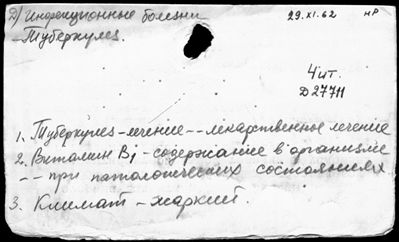 Д) Инфекционные болезни 29.XI.62 нр
- Туберкулез.
Чит.
D27711
1. Туберкулез - лечение - - лекарственное лечение
2. Витамин B1 - содержание в организме
- - при патологических состояниях
3. Климат - жаркий.